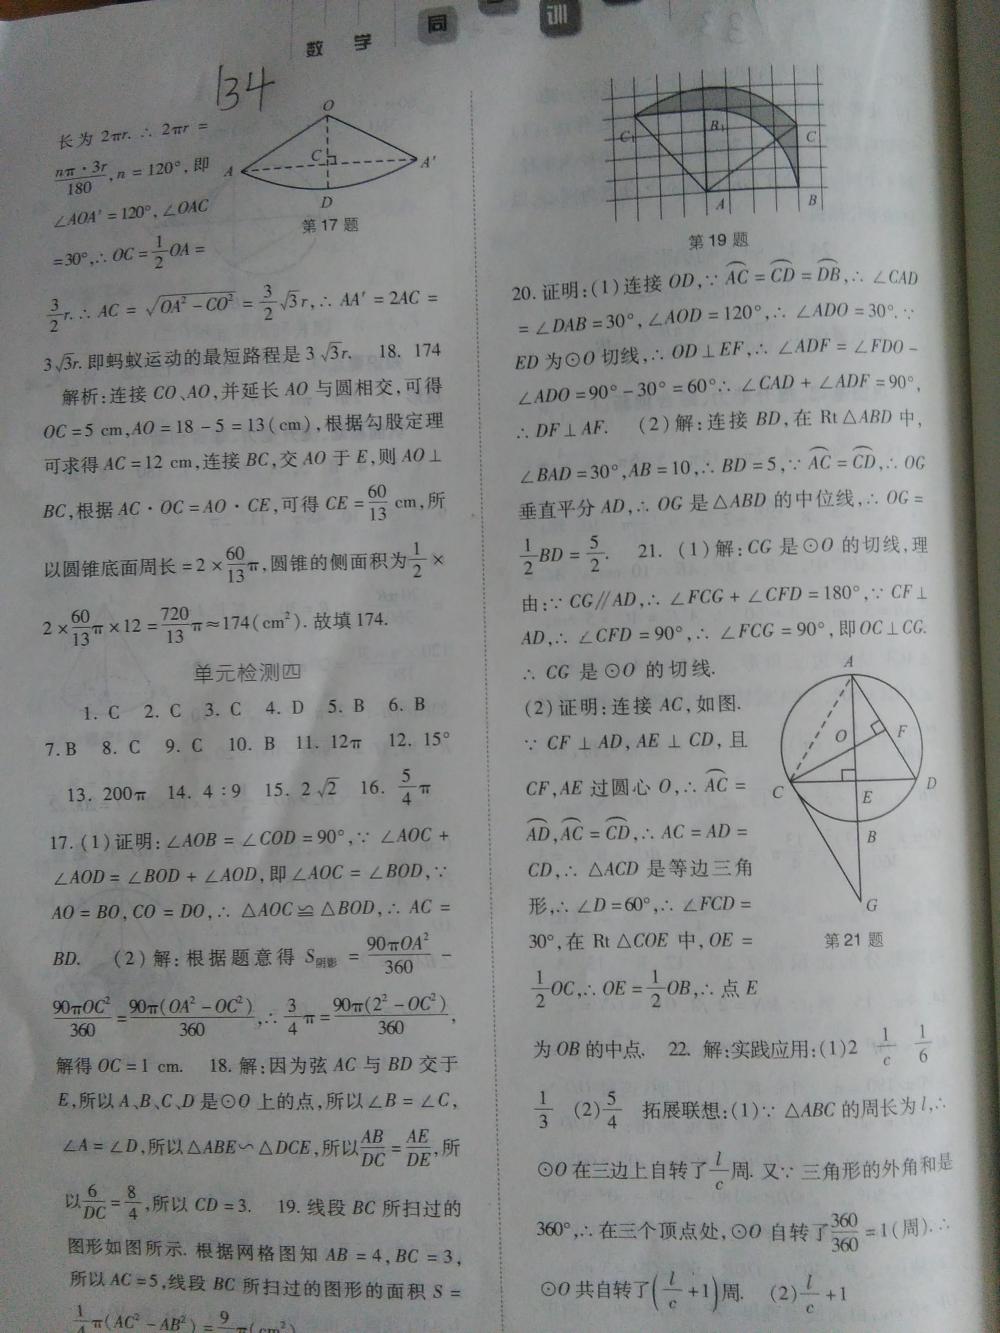 数 学 同 训
134
长为 2πr. ∴ 2πr =
nπ·3r/180, n = 120°, 即
∠AOA′ = 120°, ∠OAC
= 30°, ∴ OC = 1/2 OA =
O
C
A
A′
D
第 17 题
3/2 r. ∴ AC = √(OA² − CO²) = 3/2 √3 r, ∴ AA′ = 2AC =
3√3r. 即蚂蚁运动的最短路程是 3√3r. 18. 174
解析:连接 CO、AO,并延长 AO 与圆相交,可得
OC = 5 cm, AO = 18 − 5 = 13(cm),根据勾股定理
可求得 AC = 12 cm,连接 BC,交 AO 于 E,则 AO ⊥
BC,根据 AC · OC = AO · CE,可得 CE = 60/13 cm,所
以圆锥底面周长 = 2 × 60/13 π,圆锥的侧面积为 1/2 ×
2 × 60/13 π × 12 = 720/13 π ≈ 174(cm²). 故填 174.
单元检测四
1. C 2. C 3. C 4. D 5. B 6. B
7. B 8. C 9. C 10. B 11. 12π 12. 15°
13. 200π 14. 4 : 9 15. 2√2 16. 5/4 π
17. (1)证明:∠AOB = ∠COD = 90°, ∵ ∠AOC +
∠AOD = ∠BOD + ∠AOD,即∠AOC = ∠BOD, ∵
AO = BO, CO = DO, ∴ △AOC ≌ △BOD, ∴ AC =
BD. (2)解:根据题意得 S阴影 = 90πOA²/360 −
90πOC²/360 = 90π(OA² − OC²)/360, ∴ 3/4 π = 90π(2² − OC²)/360,
解得 OC = 1 cm. 18. 解:因为弦 AC 与 BD 交于
E,所以 A、B、C、D 是⊙O 上的点,所以∠B = ∠C,
∠A = ∠D,所以△ABE∽△DCE,所以 AB/DC = AE/DE,所
以 6/DC = 8/4,所以 CD = 3. 19. 线段 BC 所扫过的
图形如图所示. 根据网格图知 AB = 4, BC = 3,
所以 AC = 5,线段 BC 所扫过的图形的面积 S =
1/4 π(AC² − AB²) = 9/ π(cm²)
C₁
B₁
C
A
B
第 19 题
20. 证明:(1)连接 OD, ∵ A͡C = C͡D = D͡B, ∴ ∠CAD
= ∠DAB = 30°, ∠AOD = 120°, ∴ ∠ADO = 30°. ∵
ED 为⊙O 切线, ∴ OD⊥EF, ∴ ∠ADF = ∠FDO −
∠ADO = 90° − 30° = 60° ∴ ∠CAD + ∠ADF = 90°,
∴ DF⊥AF. (2)解:连接 BD,在 Rt△ABD 中,
∠BAD = 30°, AB = 10, ∴ BD = 5, ∵ A͡C = C͡D, ∴ OG
垂直平分 AD, ∴ OG 是△ABD 的中位线, ∴ OG =
1/2 BD = 5/2. 21. (1)解:CG 是⊙O 的切线,理
由: ∵ CG∥AD, ∴ ∠FCG + ∠CFD = 180°, ∵ CF⊥
AD, ∴ ∠CFD = 90°, ∴ ∠FCG = 90°,即 OC⊥CG.
∴ CG 是⊙O 的切线.
(2)证明:连接 AC,如图.
∵ CF ⊥ AD, AE ⊥ CD, 且
CF, AE 过圆心 O, ∴ A͡C =
A͡D, A͡C = C͡D, ∴ AC = AD =
CD, ∴ △ACD 是等边三角
形, ∴ ∠D = 60°, ∴ ∠FCD =
30°,在 Rt△COE 中, OE =
1/2 OC, ∴ OE = 1/2 OB, ∴ 点 E
A
O
F
C
D
E
B
G
第 21 题
为 OB 的中点. 22. 解:实践应用:(1)2 1/c 1/6
1/3 (2)5/4 拓展联想:(1) ∵ △ABC 的周长为 l, ∴
⊙O 在三边上自转了 l/c 周. 又∵ 三角形的外角和是
360°, ∴ 在三个顶点处,⊙O 自转了 360/360 = 1(周). ∴
⊙O 共自转了(l/c + 1)周. (2) l/c + 1